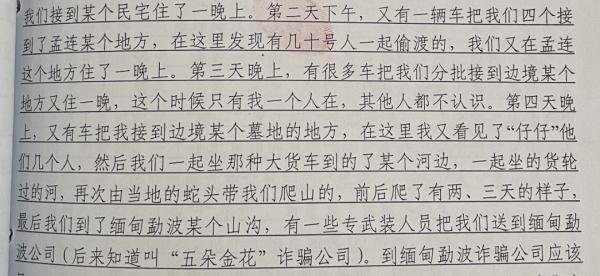 我们接到某个民宅住了一晚上。第二天下午，又有一辆车把我们四个接
到了孟连某个地方，在这里发现有几十号人一起偷渡的，我们又在孟连
这个地方住了一晚上。第三天晚上，有很多车把我们分批接到边境某个
地方又住一晚，这个时候只有我一个人在，其他人都不认识。第四天晚
上，又有车把我接到边境某个墓地的地方，在这里我又看见了“仔仔”他
们几个人，然后我们一起坐那种大货车到的了某个河边，一起坐的货轮
过的河，再次由当地的蛇头带我们爬山的，前后爬了有两、三天的样子，
最后我们到了缅甸勐波某个山沟，有一些专武装人员把我们送到缅甸勐
波公司（后来知道叫“五朵金花”诈骗公司）。到缅甸勐波诈骗公司应该